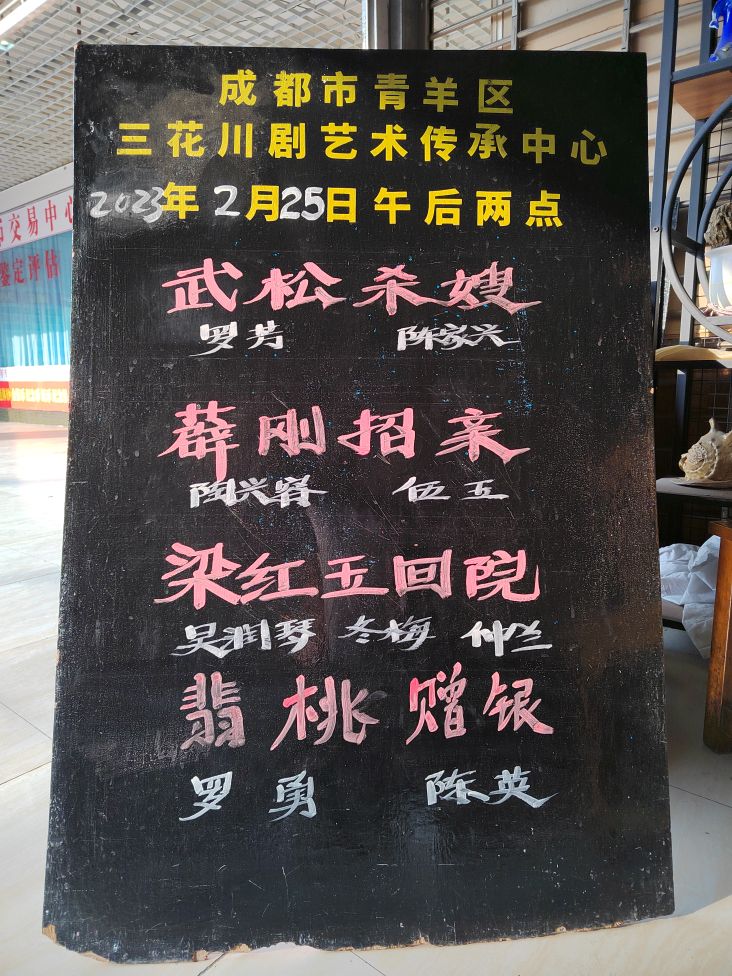 成都市青羊区
三花川剧艺术传承中心
2023年2月25日午后两点
武松杀嫂
罗芳 陈家兴
薛刚招亲
陶兴容 伍五
梁红玉回院
吴润琴 冬梅 仲兰
翡桃赠银
罗勇 陈英
交易中心
鉴定评估